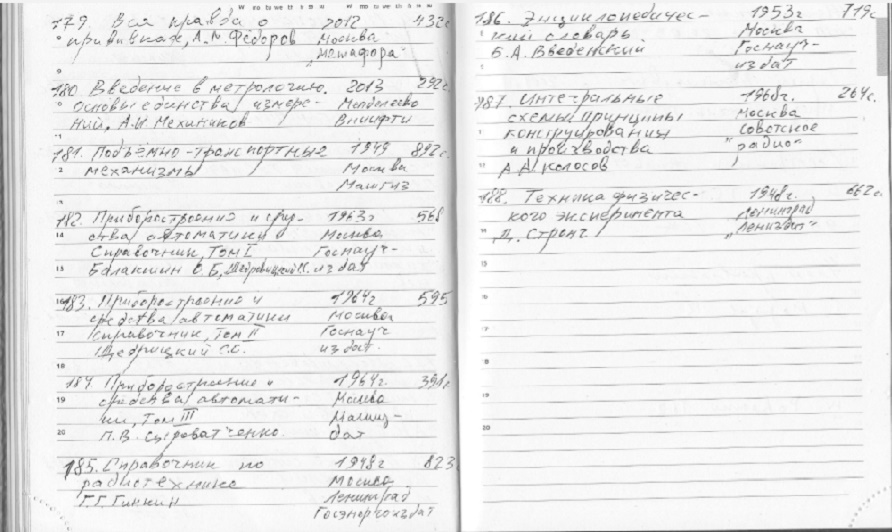 179. Вся правда о 2012 432с
прививках, А.М Федоров Москва
180 Введение в метрологию. 2013 292с
основы единства измере- Менделеево
ний, А.И Механиков
181. Подъёмно-транспортные 1949 892с
механизмы Москва
Машгиз
182. Приборостроение и сред- 1963г 568
ства автоматики Москва
Справочник, Том I Госнауч-
Балакшин О.Б, издат
183. Приборостроение и 1964г 595
средства автоматики Москва
справочник, Том II Госнауч
издат.
184 Приборостроение и 1964г
средства автомати- Москва
ки, Том III Машиз-
П.В. дат
185. Справочник по 1948г 823
радиотехнике Москва
Г.Г. Гинкин Ленинград
Госэнергоиздат
186. Энциклопедичес- 1953г 719с
кий словарь. Москва
Б.А. Введенский Госнауч-
издат
187. Интегральные 1968г. 264с.
схемы, принципы Москва
конструирования "Советское
и производства радио"
А.А. Колосов
188. Техника физичес- 1948г. 662с
кого эксперимента Ленинград
Д. Стронг "Лениздат"